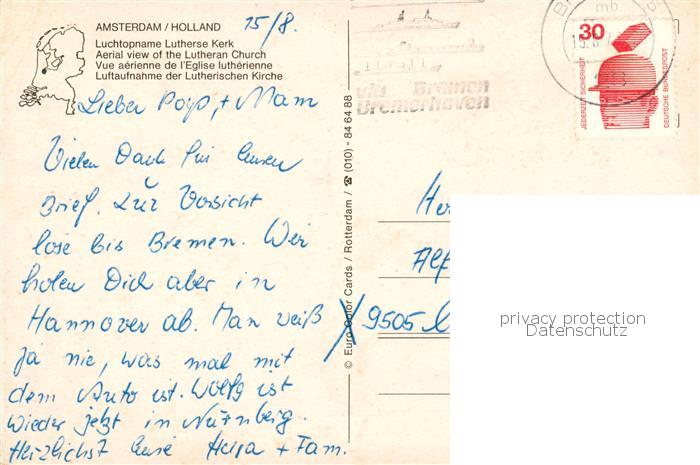 AMSTERDAM / HOLLAND
15/8.
Luchtopname Lutherse Kerk
Aerial view of the Lutheran Church
Vue aérienne de l'Eglise luthérienne
Luftaufnahme der Lutherischen Kirche
Lieber Pap, + Mam
Vielen Dank für Euren
Brief. Zur Vorsicht
löse bis Bremen. Wir
holen Dich aber in
Hannover ab. Man weiß
ja nie, was mal mit
dem Auto ist. Wolfg ist
wieder jetzt in Nürnberg.
Herzlichst Eure + Fam.
© Euro Color Cards / Rotterdam / ☎ (010) - 84 64 88
via Bremen
Bremerhaven
mb
30
JEDERZEIT SICHERHEIT
DEUTSCHE BUNDESPOST
He
Alf
9505
privacy protection
Datenschutz